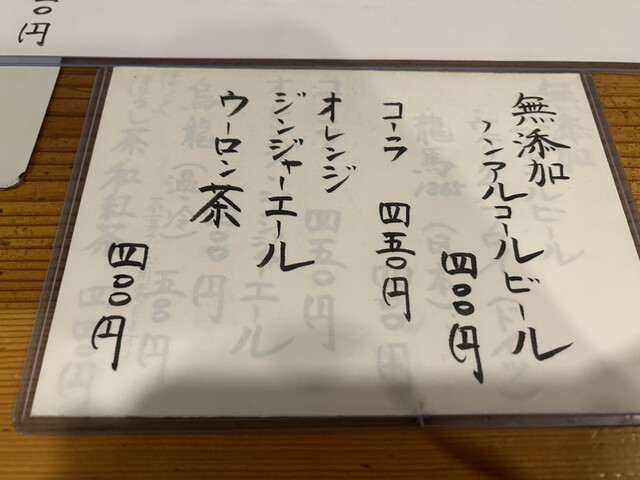 無添加
ノンアルコールビール
四〇〇円
コーラ 四五〇円
オレンジ
ジンジャーエール
ウーロン茶
四〇〇円
〇円